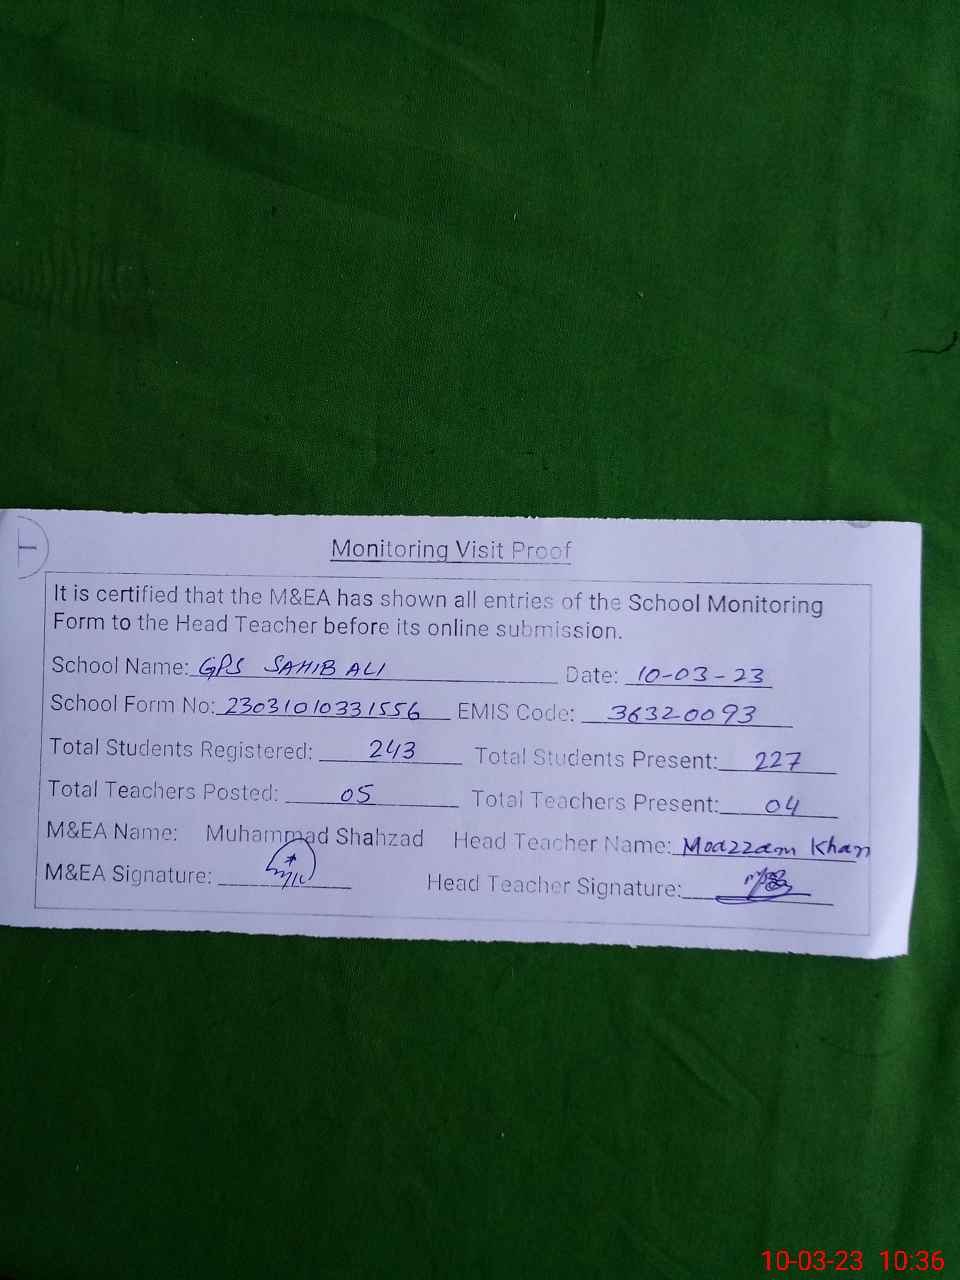 Monitoring Visit Proof
It is certified that the M&EA has shown all entries of the School Monitoring
Form to the Head Teacher before its online submission.
School Name: GPS SAHIB ALI Date: 10-03-23
School Form No: 23031010331556 EMIS Code: 36320093
Total Students Registered: 243 Total Students Present: 227
Total Teachers Posted: 05 Total Teachers Present: 04
M&EA Name: Muhammad Shahzad Head Teacher Name: Moazzam Khan
M&EA Signature: Head Teacher Signature:
10-03-23 10:36